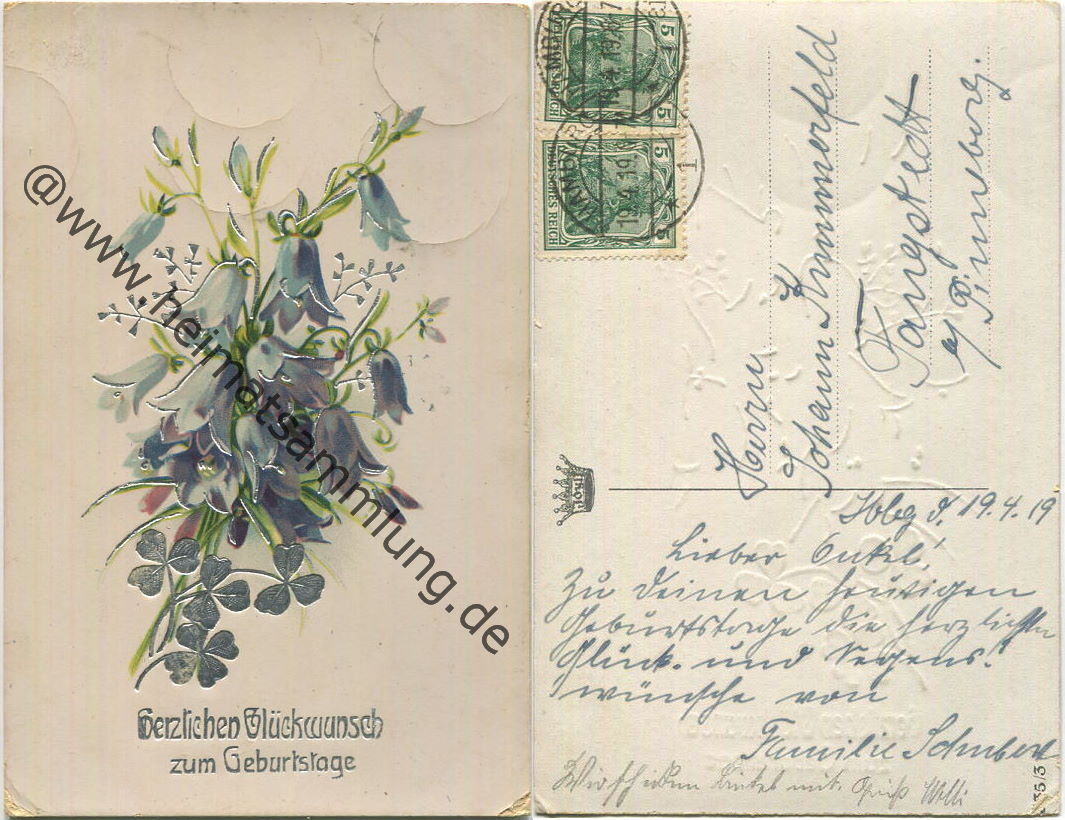 @www.heimatsammlung.de
Herzlichen Glückwunsch
zum Geburtstage
5 5
DEUTSCHES REICH
5 5
DEUTSCHES REICH
19.4.19.
1
Herrn
Johann Kummerfeld
Tangstedt
b/ Pinneberg.
Hbg d. 19.4.19
Lieber Onkel!
Zu deinen heutigen
Geburtstage die herzlichsten
Glück- und Segens-
wünsche von
Familie Schubert
Wir mit Gruß Willi
35/3